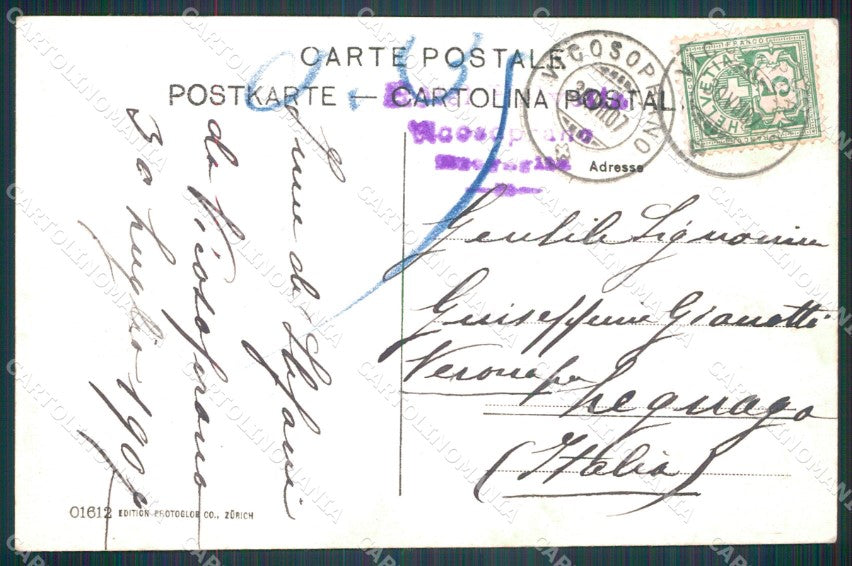 CARTE POSTALE
POSTKARTE — CARTOLINA POSTALE
0.05
VICOSOPRANO
VII 07
Vicosoprano
Bregaglia
HELVETIA
FRANCO
5
Adresse
Gentile Signorina
Giuseppina Gianotti
Verona per
Legnago
(Italia)
de Stefani
da Vicosoprano
30 Luglio 1907
01612 EDITION PHOTOGLOB CO., ZÜRICH
CARTOLINOMANIA